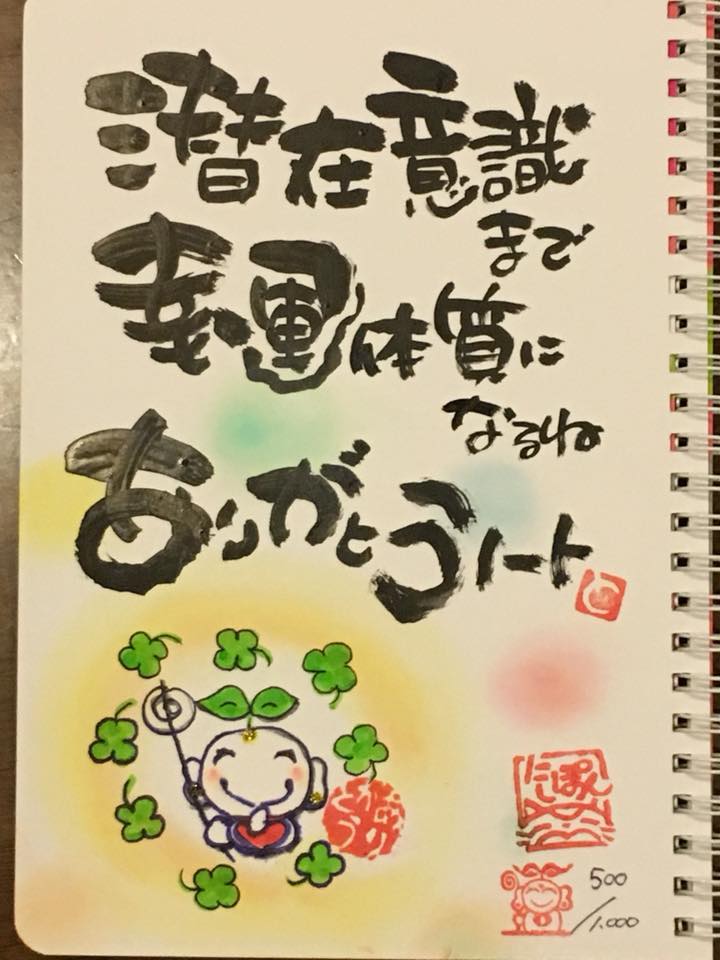 潜在意識
まで
幸運体質に
なるね
ありがとうノート
にしぽん
500/1.000